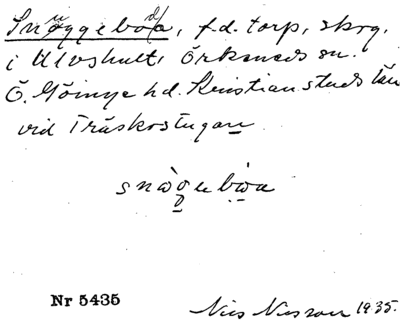 Snyggeboda, f.d. torp, skog,
i Ulvshult, Örkeneds sn.
Ö. Göinge hd. Kristianstads län
vid Träskostugan
Nr 5435
Nils Nilsson 1935.